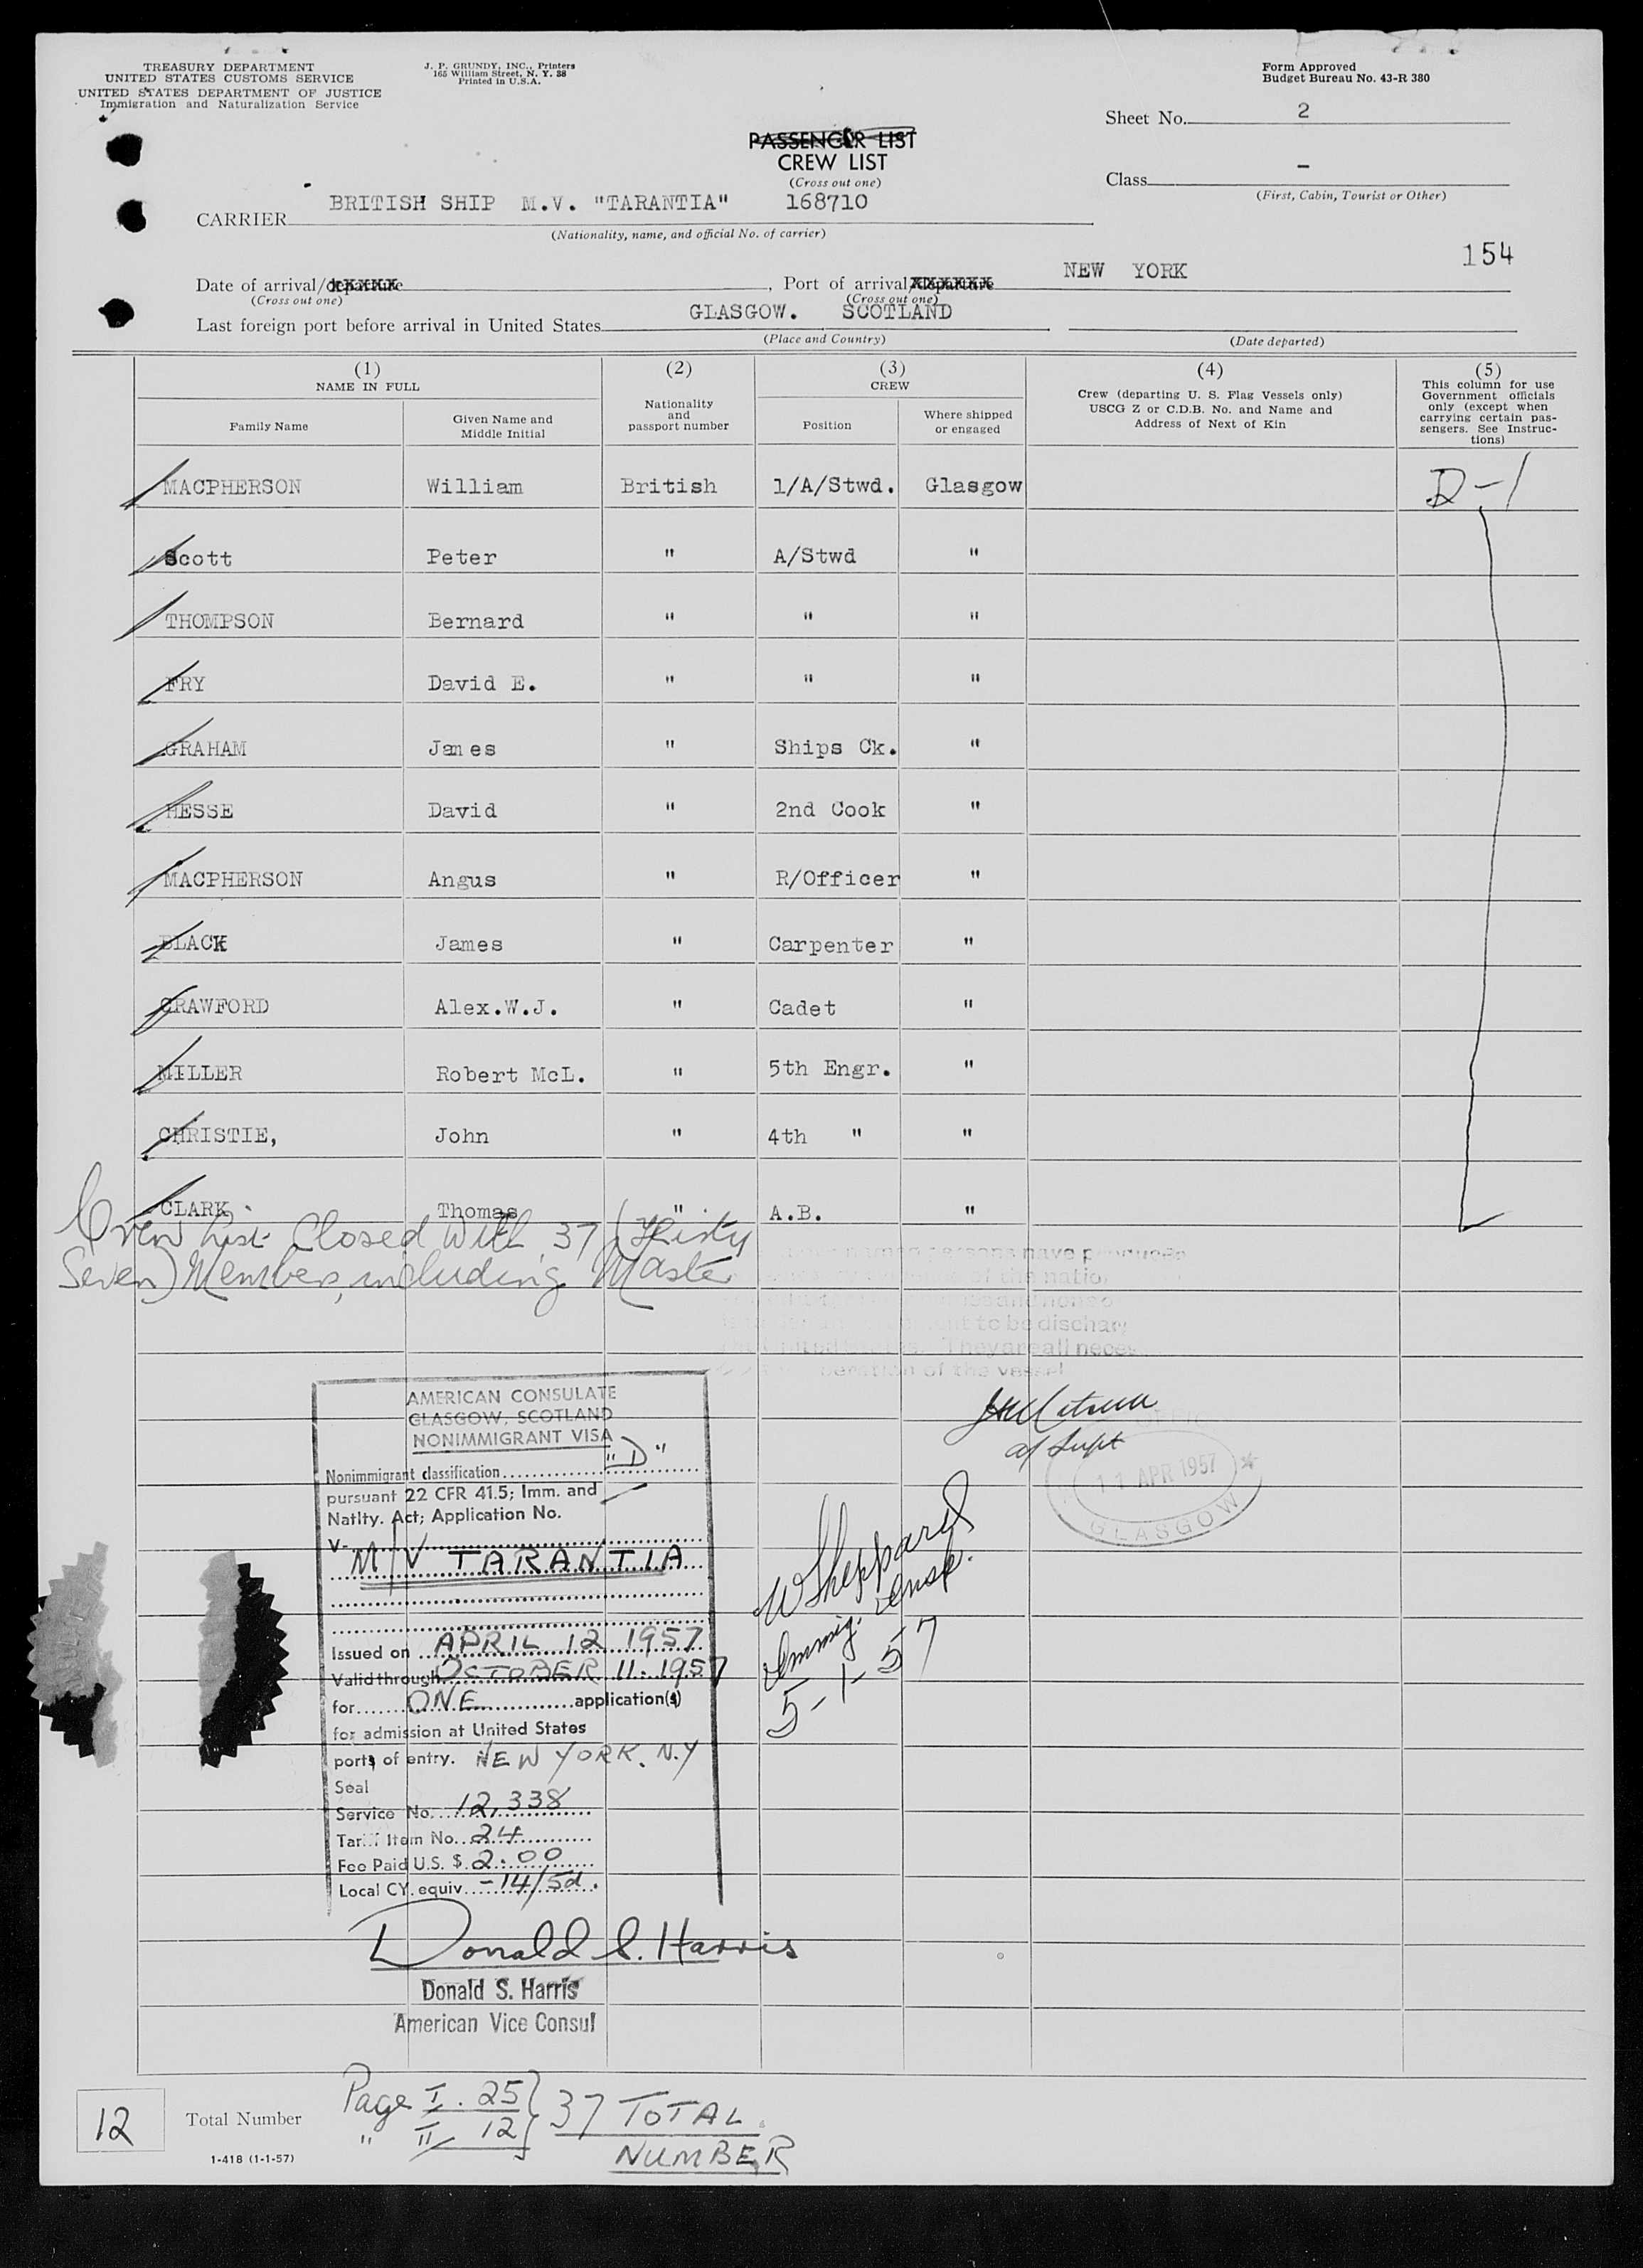 TREASURY DEPARTMENT
UNITED STATES CUSTOMS SERVICE
UNITED STATES DEPARTMENT OF JUSTICE
Immigration and Naturalization Service
J. P. GRUNDY, INC., Printers
165 William Street, N. Y. 38
Printed in U.S.A.
Form Approved
Budget Bureau No. 43-R 380
Sheet No. 2
PASSENGER LIST
CREW LIST
(Cross out one)
Class -
(First, Cabin, Tourist or Other)
CARRIER BRITISH SHIP M.V. "TARANTIA" 168710
(Nationality, name, and official No. of carrier)
154
Date of arrival/departure , Port of arrival/departure NEW YORK
(Cross out one) (Cross out one)
Last foreign port before arrival in United States GLASGOW. SCOTLAND
(Place and Country) (Date departed)
(1) NAME IN FULL
Family Name
Given Name and Middle Initial
(2) Nationality and passport number
(3) CREW
Position
Where shipped or engaged
(4) Crew (departing U. S. Flag Vessels only) USCG Z or C.D.B. No. and Name and Address of Next of Kin
(5) This column for use Government officials only (except when carrying certain passengers. See Instructions)
MACPHERSON William British 1/A/Stwd. Glasgow D-1
Scott Peter " A/Stwd "
THOMPSON Bernard " " "
FRY David E. " " "
GRAHAM James " Ships Ck. "
HESSE David " 2nd Cook "
MACPHERSON Angus " R/Officer "
BLACK James " Carpenter "
CRAWFORD Alex.W.J. " Cadet "
MILLER Robert McL. " 5th Engr. "
CHRISTIE, John " 4th " "
CLARK Thomas " A.B. "
Crew List Closed With 37 (Thirty
Seven) Members, including Master
persons have produced
of the natio
to be discharg
They are all neces
peration of the vessel
a/ Supt
11 APR 1957
GLASGOW
AMERICAN CONSULATE
GLASGOW, SCOTLAND
NONIMMIGRANT VISA
Nonimmigrant classification "D"
pursuant 22 CFR 41.5; Imm. and
Natlty. Act; Application No.
V-
M/V TARANTIA
Issued on APRIL 12 1957
Valid through OCTOBER 11. 1957
for ONE application(s)
for admission at United States
ports of entry. NEW YORK. N.Y
Seal
Service No. 12,338
Tariff Item No. 24
Fee Paid U.S. $ 2.00
Local CY. equiv. -14/5d.
W Sheppard
Immig. Insp.
5-1-57
Donald S. Harris
Donald S. Harris
American Vice Consul
12
Total Number
1-418 (1-1-57)
Page I. 25
" II 12
37 TOTAL
NUMBER